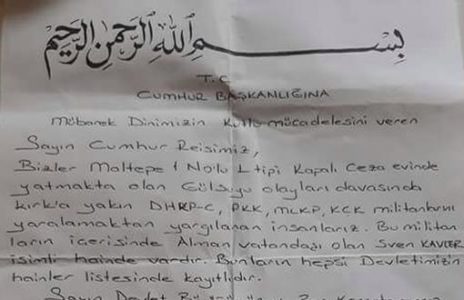 بسم الله الرحمن الرحيم
T.C
CUMHUR BAŞKANLIĞINA
Mübarek Dinimizin Kutlu mücadelesini veren
Sayın Cumhur Reisimiz,
Bizler Maltepe 1 No'lu L tipi Kapalı Ceza evinde
yatmakta olan Gülsuyu olayları davasında
kırk'a yakın DHKP-C, PKK, MLKP, KCK militanlarını
yaralamaktan yargılanan insanlarız. Bu militan
ların içerisinde Alman vatandaşı olan Sven KAVLER
isimli hainde vardır. Bunların hepsi Devletimizin
hainler listesinde kayıtlıdır.
Sayın Devlet